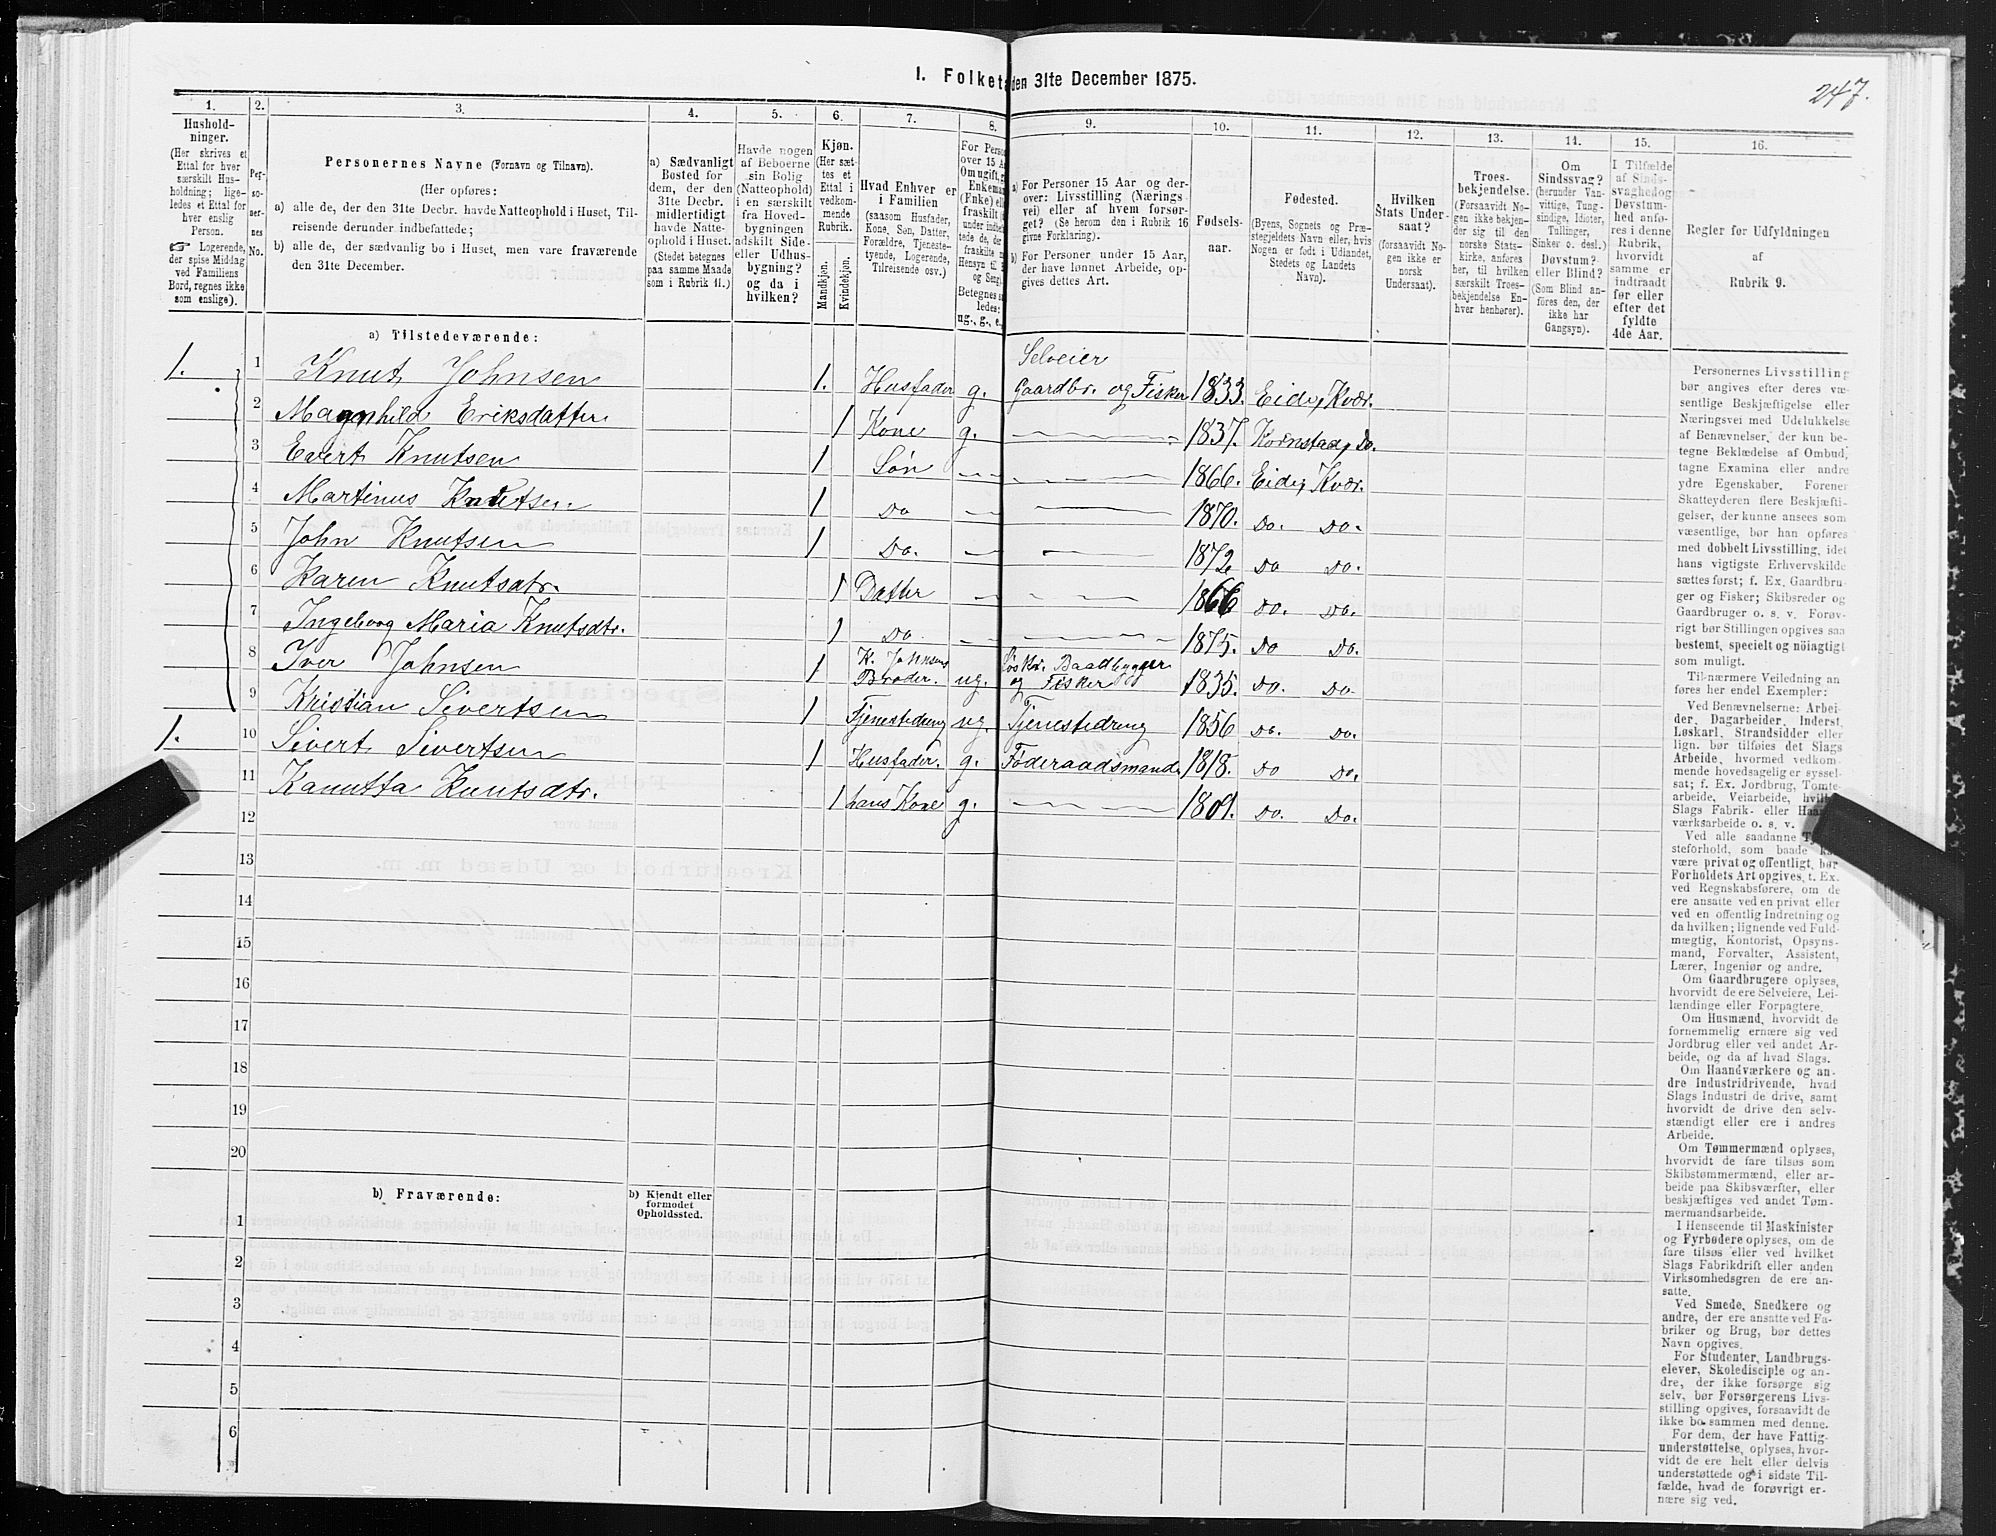 247.
I. Folketæ den 31te December 1875.
1. 2. 3. 4. 5. 6. 7. 8. 9. 10. 11. 12. 13. 14. 15. 16.
Hushold-
ninger.
(Her skrives et
Ettal for hver
særskilt Hus-
holdning; lige-
ledes et Ettal for
hver enslig
Person.
☞ Logerende,
der spise Middag
ved Familiens
Bord, regnes ikke
som enslige).
Per-
so-
ner-
nes
No.
Personernes Navne (Fornavn og Tilnavn).
(Her opføres:
a) alle de, der den 31te Decbr. havde Natteophold i Huset, Til-
reisende derunder indbefattede;
b) alle de, der sædvanlig bo i Huset, men vare fraværende
den 31te December.
a) Sædvanligt
Bosted for
dem, der den
31te Decbr.
midlertidigt
havde Natte-
ophold i Huset.
(Stedet betegnes
paa samme Maade
som i Rubrik 11.)
Havde nogen
af Beboerne
sin Bolig
(Natteophold)
i en særskilt
fra Hoved-
bygningen
adskilt Side-
eller Udhus-
bygning?
og da i
hvilken?
Kjøn.
(Her sæt-
tes et
Ettal i
vedkom-
mende
Rubrik.
Mandkjøn.
Kvindekjøn.
Hvad Enhver er
i Familien
(saasom Husfader,
Kone, Søn, Datter,
Forældre, Tjeneste-
tyende, Logerende,
Tilreisende osv.)
For Pers
over 15 A
Om ugift, g
Enkeman
(Enke) ell
fraskilt
Betegnes
ledes:
ug., g., e.,
a) For Personer 15 Aar og der-
over: Livsstilling (Nærings-
vei) eller af hvem forsør-
get? (Se herom den i Rubrik 16
givne Forklaring).
b) For Personer under 15 Aar,
der have lønnet Arbeide, op-
gives dettes Art.
Fødsels-
aar.
Fødested.
(Byens, Sognets og Præ-
stegjeldets Navn eller, hvis
Nogen er født i Udlandet,
Stedets og Landets
Navn).
Hvilken
Stats Under-
saat?
(forsaavidt No-
gen ikke er
norsk
Undersaat).
Troes-
bekjendelse.
(Forsaavidt No-
gen ikke bekjen-
der sig til den
norske Stats-
kirke, anføres
her, til hvilken
særskilt Troes-
bekjendelse En-
hver henhører).
Om
Sindssvag?
(herunder Van-
vittige, Tung-
sindige, Idioter,
Tullinger,
Sinker o. desl.)
Døvstum?
eller Blind?
(Som Blind an-
føres den, der
ikke har
Gangsyn).
I Tilfælde
af Sinds-
svaghed og
Døvstum-
hed anfø-
res i denne
Rubrik,
hvorvidt
samme er
indtraadt
før eller
efter det
fyldte
4de Aar.
Regler for Udfyldningen
af
Rubrik 9.
a) Tilstedeværende:
1. 1 Knut Johnsen 1. Husfader g. Selveier Gaardbr. og Fisker 1833. Eide, Kvær.
2 Magnhild Eriksdatter 1 Kone g. 1837. Kornstad, Do.
3 Evert Knutsen 1 Søn 1866. Eide, Kvær.
4 Martinus Knutsen 1 Do 1870. Do. Do.
5 John Knutsen 1 Do. 1872 Do Do.
6 Karen Knutsdtr. 1 Datter 1866 Do. Do.
7 Ingeborg Maria Knutsdtr. 1 Do 1875. Do Do.
8 Iver Johnsen 1 K. Johnsens Broder. ug. Baadbygger og Fisker 1835. Do. Do.
9 Kristian Sivertsen 1 Tjenestedreng ug. Tjenestedreng 1856 Do. Do.
1. 10 Sivert Sivertsen 1 Husfader. g. Føderaadsmand 1818. Do Do.
11 Kanutta Knutsdtr. 1 hans Kone g. 1801. Do. Do.
12
13
14
15
16
17
18
19
20
b) Fraværende:
b) Kjendt eller
formodet
Opholdssted.
1
2
3
4
5
6
Personernes Livsstilling
bør angives efter deres væ-
sentlige Beskjæftigelse eller
Næringsvei med Udelukkelse
af Benævnelser, der kun be-
tegne Beklædelse af Ombud,
tagne Examina eller andre
ydre Egenskaber. Forener
Skatteyderen flere Beskjæfti-
gelser, der kunne ansees som
væsentlige, bør han opføres
med dobbelt Livsstilling, idet
hans vigtigste Erhvervskilde
sættes først; f. Ex. Gaardbru-
ger og Fisker; Skibsreder og
Gaardbruger o. s. v. Forøv-
rigt bør Stillingen opgives saa
bestemt, specielt og nöiagtigt
som muligt.
Til nærmere Veiledning an
føres her endel Exempler:
Ved Benævnelserne: Arbei-
der, Dagarbeider, Inderst,
Løskarl, Strandsidder eller
lign. bør tilføies det Slags
Arbeide, hvormed vedkom-
mende hovedsagelig er syssel-
sat; f. Ex. Jordbrug, Tomte-
arbeide, Veiarbeide, hvilket
Slags Fabrik- eller Haand-
værksarbeide o. s. v.
Ved alle saadanne Tje-
steforhold, som baade kan
være privat og offentligt, bør
Forholdets Art opgives, t. Ex.
ved Regnskabsførere, om de
ere ansatte ved en privat eller
ved en offentlig Indretning og
da hvilken; lignende ved Fuld-
mægtig, Kontorist, Opsyns-
mand, Forvalter, Assistent,
Lærer, Ingeniør og andre.
Om Gaardbrugere oplyses,
hvorvidt de ere Selveiere, Lei-
lændinge eller Forpagtere.
Om Husmænd, hvorvidt de
fornemmelig ernære sig ved
Jordbrug eller ved andet Ar-
beide, og da af hvad Slags.
Om Haandværkere og an-
dre Industridrivende, hvad
Slags Industri de drive, samt
hvorvidt de drive den selv-
stændigt eller ere i andres
Arbeide.
Om Tømmermænd oplyses,
hvorvidt de fare tilsøs som
Skibstømmermænd, eller ar-
beide paa Skibsværfter, eller
beskjæftiges ved andet Tøm-
mermandsarbeide.
I Henseende til Maskinister
og Fyrbødere oplyses, om de
fare tilsøs eller ved hvilket
Slags Fabrikdrift eller anden
Virksomhedsgren de ere an-
satte.
Ved Smede, Snedkere og
andre, der ere ansatte ved Fa-
briker og Brug, bør dettes
Navn opgives.
For Studenter, Landbrugs-
elever, Skoledisciple og an-
dre, der ikke forsørge sig
selv, bør Forsørgerens Livs-
stilling opgives, forsaavidt de
ikke bo sammen med denne.
For dem, der have Fattig-
understøttelse, oplyses, hvor-
vidt de ere helt eller delvis
understøttede og i sidste Til-
fælde, hvad de forøvrigt er-
nære sig ved.